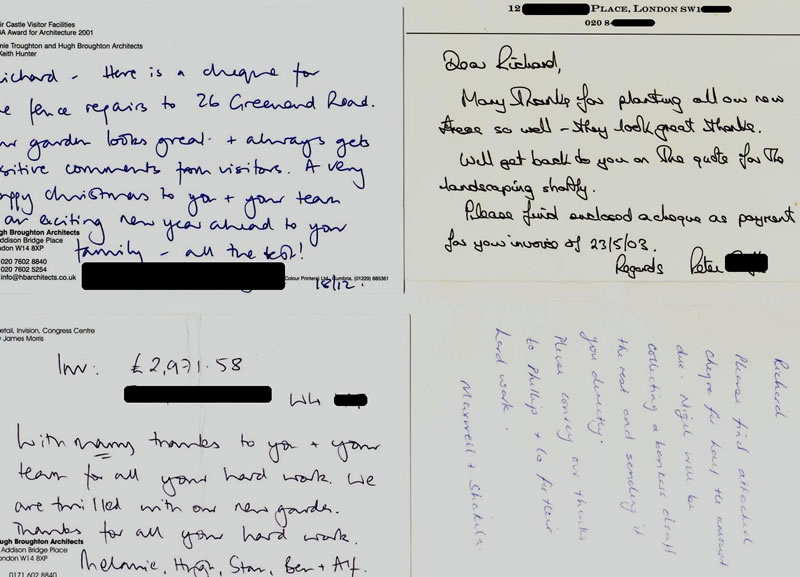 ir Castle Visitor Facilities
BA Award for Architecture 2001
mie Troughton and Hugh Broughton Architects
Keith Hunter
ichard - Here is a cheque for
e fence repairs to 26 Greenend Road.
ur garden looks great + always gets
sitive comments from visitors. A very
ppy christmas to you + your team
an exciting new year ahead to your
family - all the best!
18/12.
gh Broughton Architects
Addison Bridge Place
ndon W14 8XP
020 7602 8840
020 7602 5254
info@hbarchitects.co.uk
Colour Printers Ltd. Cumbria. (01229) 885361
12 PLACE, LONDON SW1
020 8
Dear Richard,
Many Thanks for planting all our new
trees so well - they look great thanks.
Will get back to you on The quote for The
landscaping shortly.
Please find enclosed a cheque as payment
for your invoice of 23/5/03.
Regards Peter
etail, Invision, Congress Centre
James Morris
Inv: £2,971.58
With many thanks to you + your
team for all your hard work. We
are thrilled with our new garden.
Thanks for all your hard work.
Melanie, Hugh, Stan, Ben + Alf.
ugh Broughton Architects
Addison Bridge Place
ondon W14 8XP
0171 602 8840
Richard
Please find attached
cheque for half the amount
due. Nigel will be
collecting a bankers draft
the rest and sending it
you directly.
Please convey our thanks
to Phillip + co for their
hard work.
Maxwell + Shakila.